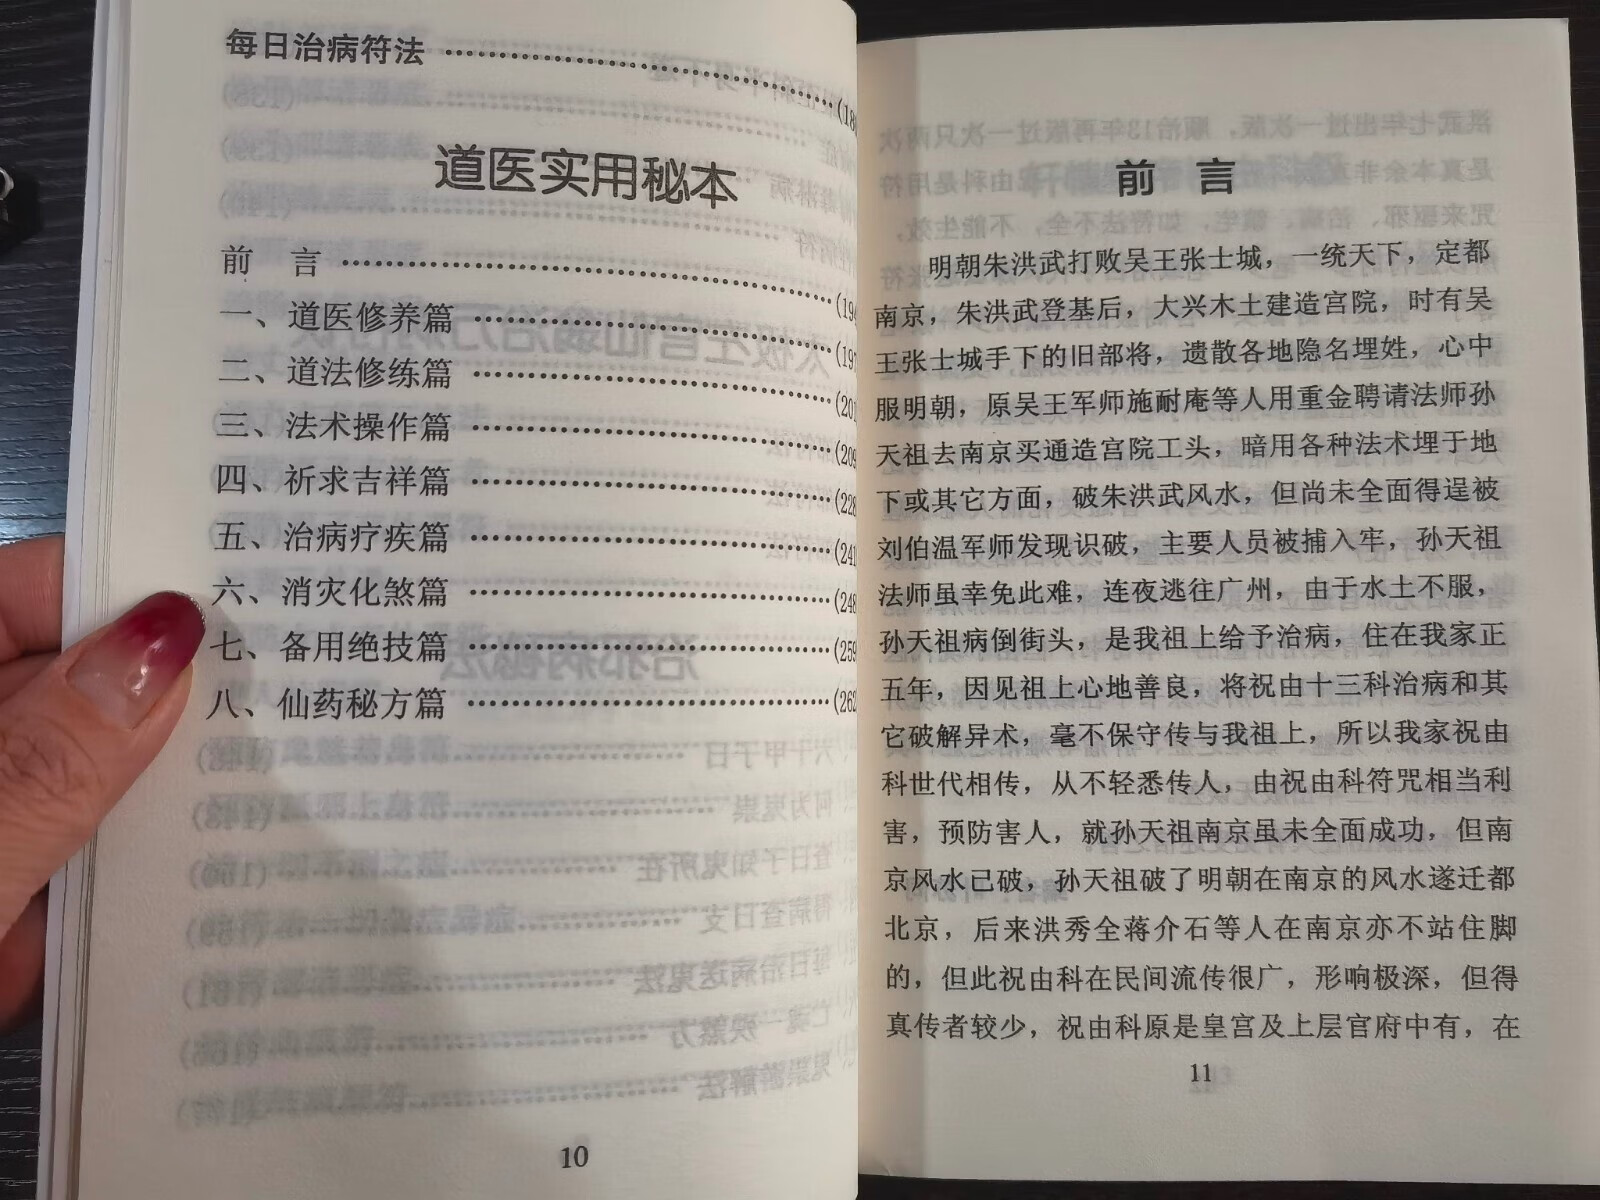 每日治病符法 ……………………………(18
道医实用秘本
前　言 ……………………………(194
一、道医修养篇 ……………………………(197
二、道法修练篇 ……………………………(201
三、法术操作篇 ……………………………(209
四、祈求吉祥篇 ……………………………(228
五、治病疗疾篇 ……………………………(241
六、消灾化煞篇 ……………………………(248
七、备用绝技篇 ……………………………(259
八、仙药秘方篇 ……………………………(262
10
前　言
明朝朱洪武打败吴王张士城，一统天下，定都
南京，朱洪武登基后，大兴木土建造宫院，时有吴
王张士城手下的旧部将，遗散各地隐名埋姓，心中
服明朝，原吴王军师施耐庵等人用重金聘请法师孙
天祖去南京买通造宫院工头，暗用各种法术埋于地
下或其它方面，破朱洪武风水，但尚未全面得逞被
刘伯温军师发现识破，主要人员被捕入牢，孙天祖
法师虽幸免此难，连夜逃往广州，由于水土不服，
孙天祖病倒街头，是我祖上给予治病，住在我家正
五年，因见祖上心地善良，将祝由十三科治病和其
它破解异术，毫不保守传与我祖上，所以我家祝由
科世代相传，从不轻悉传人，由祝由科符咒相当利
害，预防害人，就孙天祖南京虽未全面成功，但南
京风水已破，孙天祖破了明朝在南京的风水遂迁都
北京，后来洪秀全蒋介石等人在南京亦不站住脚
的，但此祝由科在民间流传很广，形响极深，但得
真传者较少，祝由科原是皇宫及上层官府中有，在
11